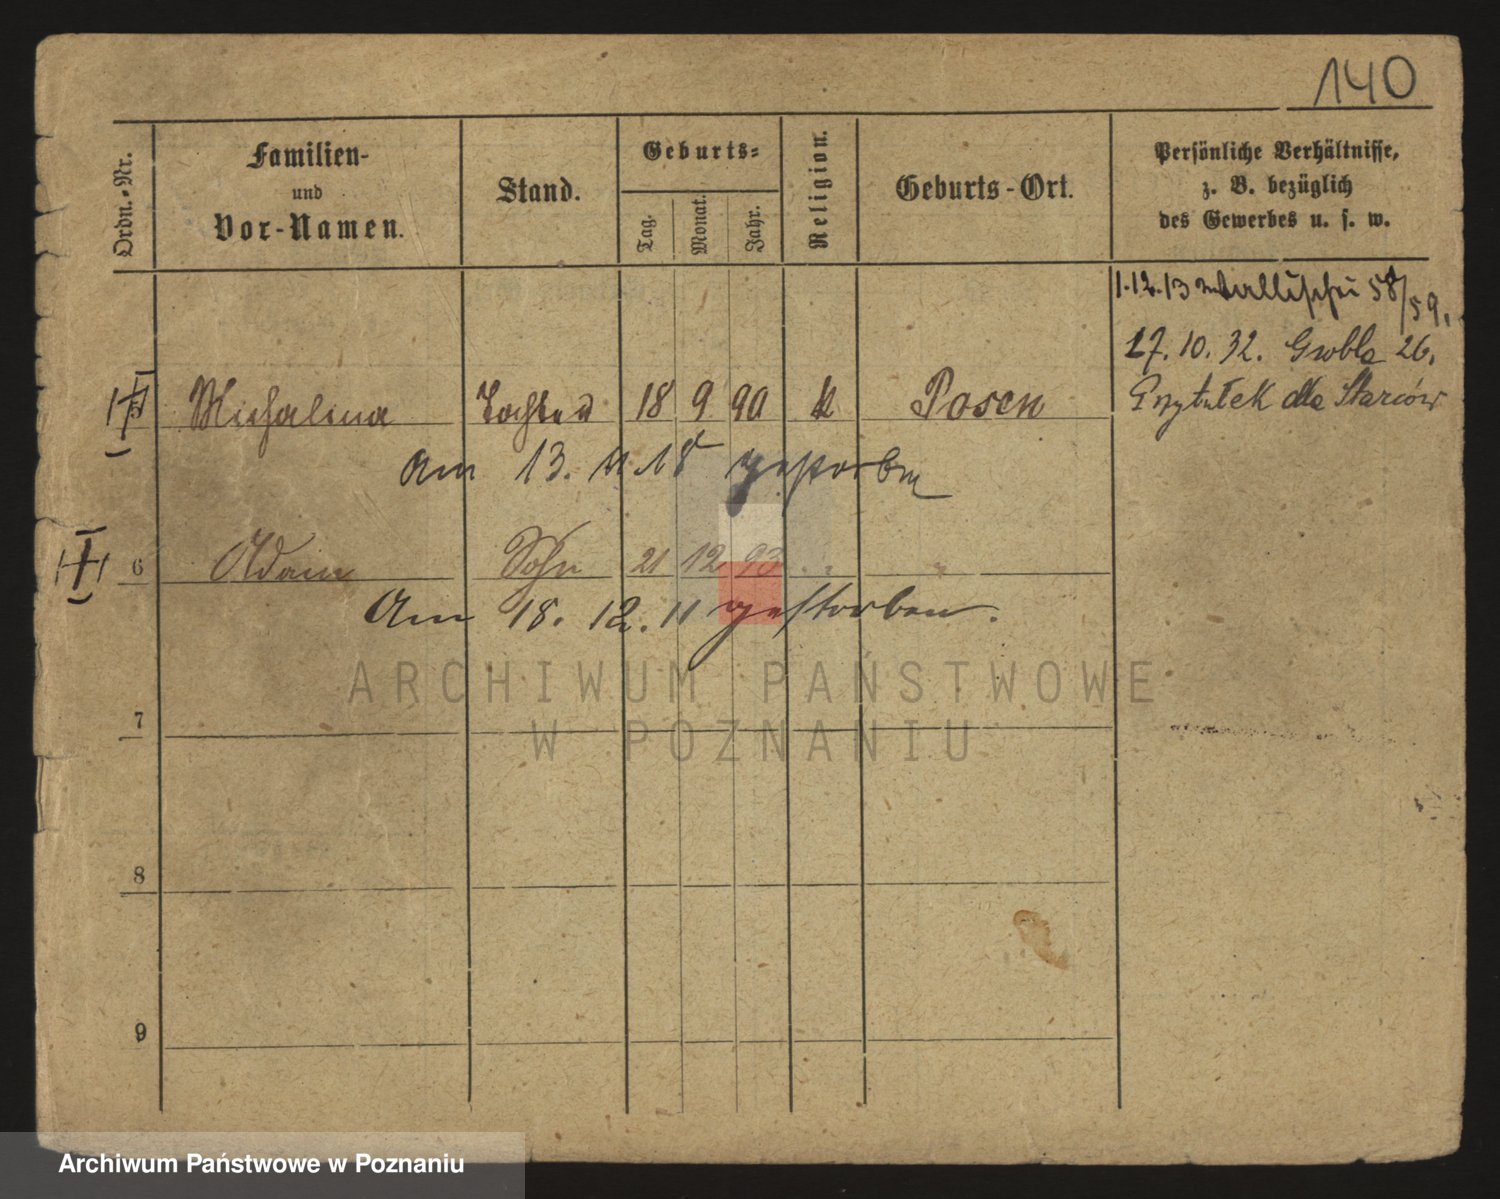 140
Ordn.-Nr.
Familien-
und
Vor-Namen.
Stand.
Geburts-
Tag.
Monat.
Jahr.
Religion.
Geburts-Ort.
Persönliche Verhältnisse,
z. B. bezüglich
des Gewerbes u. s. w.
1.12.13 Wallischei 58/59.
17.10.32. Grobla 26.
Przytułek dla Starców
Michalina Tochter 18 9 90 k Posen
Am 13. 18 gestorben
6 Adam Sohn 21 12 93
Am 18. 12. 11 gestorben.
ARCHIWUM PAŃSTWOWE
W POZNANIU
7
8
9
Archiwum Państwowe w Poznaniu